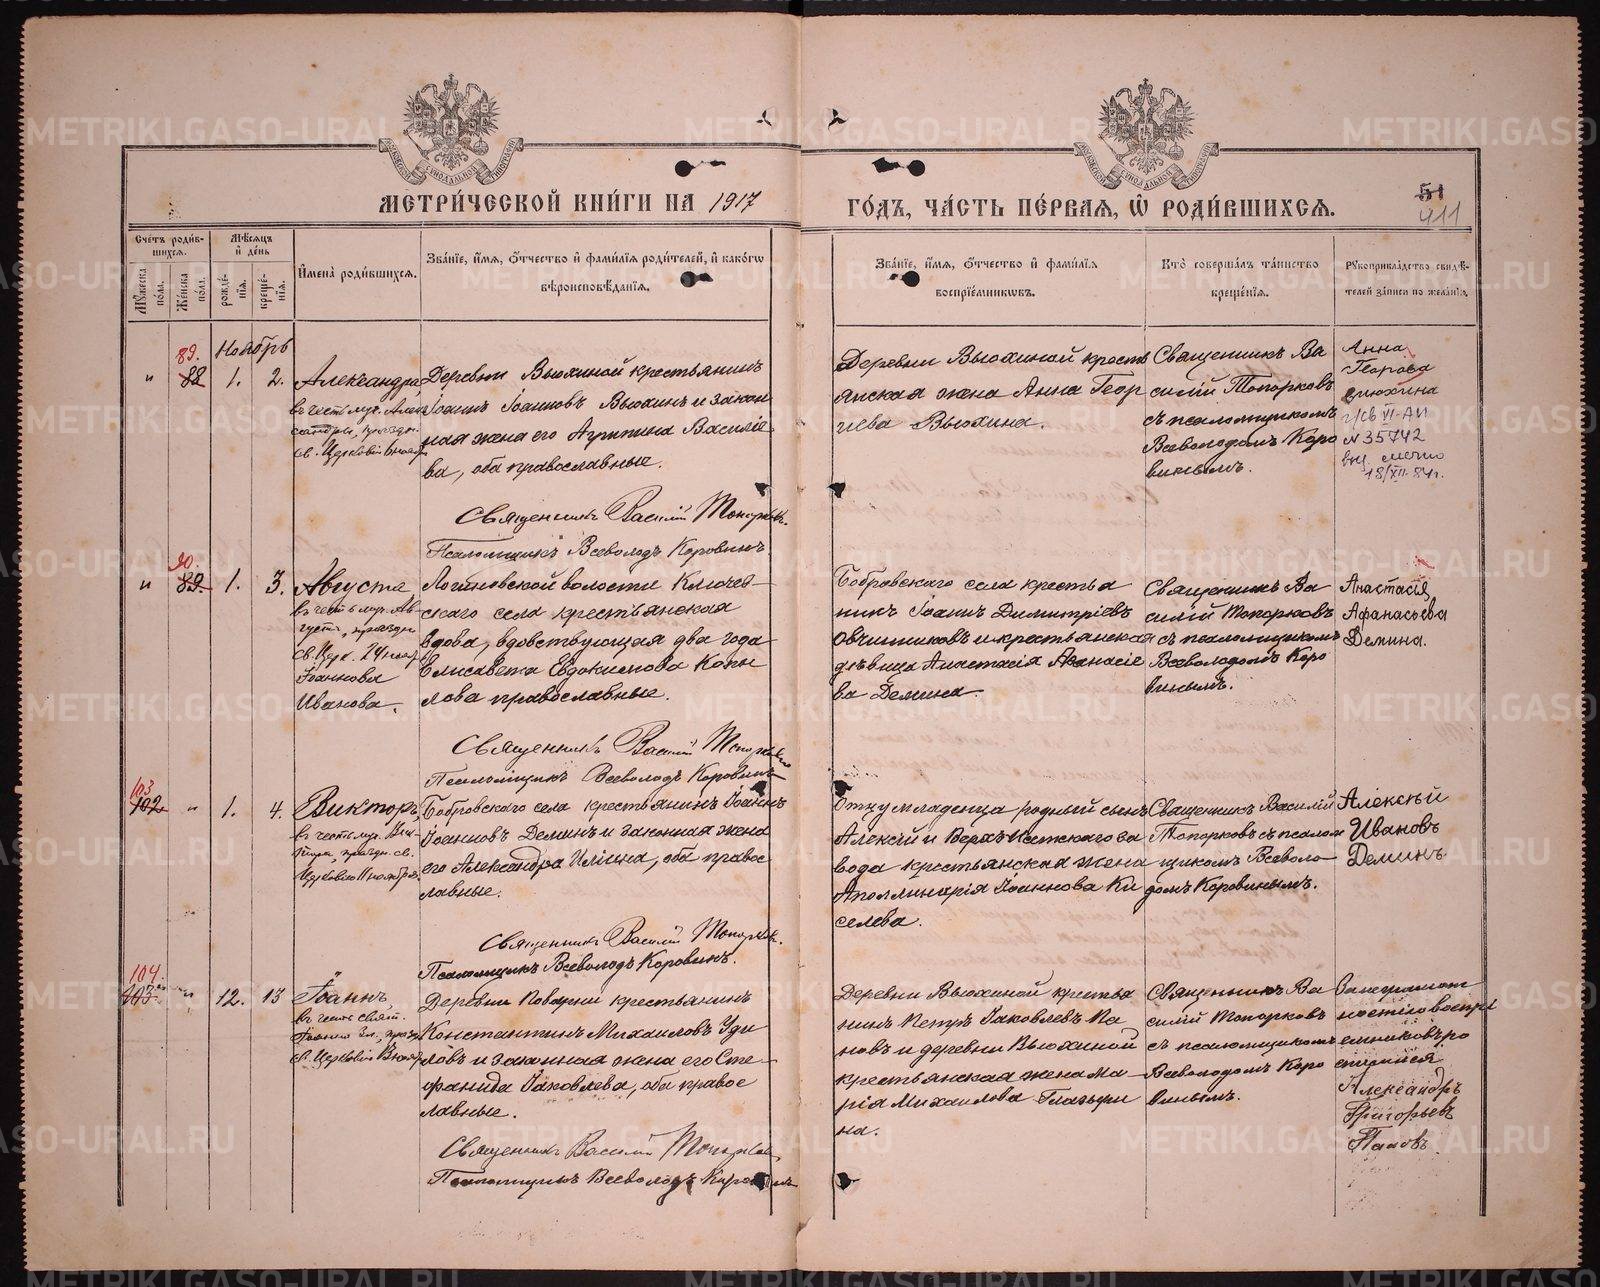 МЕТРИ́ЧЕСКОЙ КНИ́ГИ НА 1917
ГО́ДЪ, ЧА́СТЬ ПЕ́РВАЯ, Ѡ҆ РОДИ́ВШИХСЯ.
51
411
Сче́тъ роди́в-
шихся.
Мѣ́сяцъ
и҆ де́нь
Мꙋ́жеска
по́ла.
Же́нска
по́ла.
рожде́-
нїя.
креще́-
нїя.
И҆мена̀ роди́вшихся.
Зва́нїе, и҆́мя, ѻ҆́тчество и҆ фами́лїя роди́телей, и҆ како́гѡ
вѣроисповѣ́данїя.
Зва́нїе, и҆́мя, ѻ҆́тчество и҆ фами́лїя
воспрїе́мникѡвъ.
Кто̀ соверша́лъ та́инство
креще́нїя.
Рꙋкоприкла́дство свидѣ́-
телей за́писи по жела́нїю.
Ноябрь
89.
88
1.
2.
Александра
въ честь муч. Алек
сандры, праздн.
св. Церковію 6 ноябр
Деревни Вьюхиной крестьянинъ
Іоаннъ Іоанновъ Вьюхинъ и закон
ная жена его Агрипина Василіе
ва, оба православные.
Священникъ Василій Топорков.
Псаломщикъ Всеволодъ Коровинъ.
Деревни Вьюхиной кресть
янская жена Анна Геор
гиева Вьюхина.
Священникъ Ва
силій Топорковъ
съ псаломщикомъ
Всеволодомъ Коро
винымъ.
Анна
Егорова
Вьюхина
г/св VI-АИ
№ 35742
выд. 
18/XII-84г.
90.
89.
1.
3.
Августа,
въ честь муч. Ав-
густы, праздн
св. Церк. 24 нояб
Іоаннова
Иванова.
Логиновской волости Ключев-
скаго села крестьянская
вдова, вдовствующая два года
Елисавета Евдокимова Копы
лова православные.
Священникъ Василій Топорковъ
Псаломщикъ Всеволодъ Коровинъ
Бобровскаго села крестья
нинъ Іоаннъ Димитріевъ
Овчинниковъ и крестьянская
дѣвица Анастасія Аѳанасіе
ва Демина.
Священникъ Ва
силій Топорковъ
съ псаломщикомъ
Всеволодомъ Коро
винымъ.
Анастасія
Афанасьева
Демина.
103
102
1.
4.
Викторъ,
въ честь муч. Вик-
тора, праздн. св.
Церковію 11 ноября.
Бобровскаго села крестьянинъ Іоаннъ
Іоанновъ Деминъ и законная жена
его Александра Иліина, оба правос
лавные.
Священникъ Василій Топорков.
Псаломщикъ Всеволодъ Коровинъ.
Отцу младенца родный сынъ
Алексій и Верхъ-Исетскаго за
вода крестьянская жена
Аполлинарія Іоаннова Ки
селева.
Священникъ Василій
Топорковъ съ псалом
щикомъ Всеволо-
домъ Коровинымъ.
Алексѣй
Ивановъ
Деминъ
104
103
12.
13
Іоаннъ,
въ честь свят.
Іоанна Зл., праз
св. Церковію 13 нояб
Деревни Поварни крестьянинъ
Константинъ Михаиловъ Уди
ловъ и законная жена его Сте-
фанида Іаковлева, оба правос
лавные.
Священникъ Василій Топорков
Псаломщикъ Всеволодъ Коровинъ
Деревни Вьюхиной крестья
нинъ Петръ Іаковлевъ Па
новъ и деревни Вьюхиной
крестьянская жена Ма-
рія Михаилова Глазыри
на.
Священникъ Ва
силій Топорковъ
съ псаломщикомъ
Всеволодомъ Коро
винымъ.
За неграмот
ностію воспрі
емниковъ ро
списался
Александръ
Григорьевъ
Пановъ
METRIKI.GASO-URAL.RU